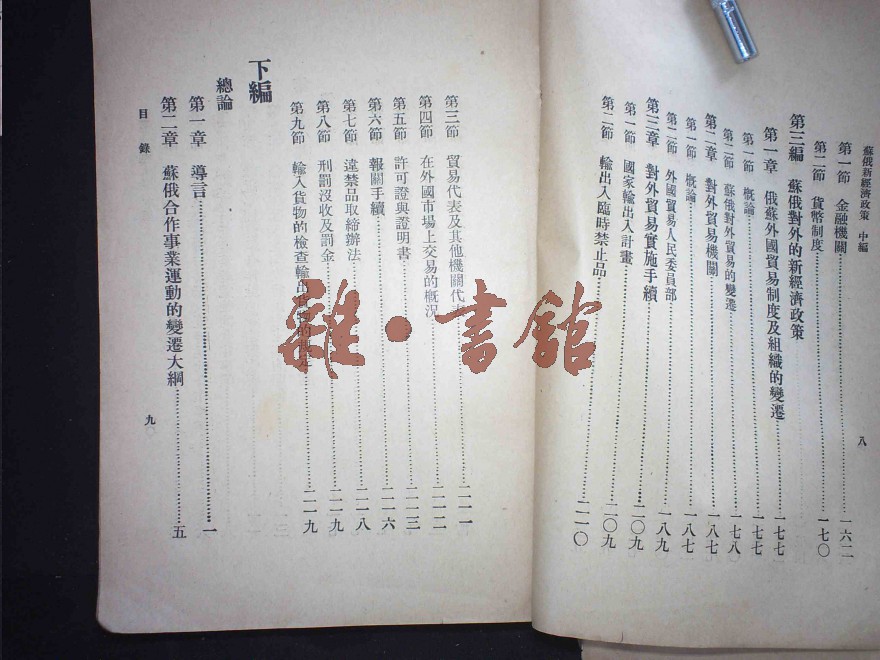 蘇俄新經濟政策 中編
八
第一節 金融機關……一六二
第二節 貨幣制度……一七〇
第三編 蘇俄對外的新經濟政策
第一章 俄蘇外國貿易制度及組織的變遷……一七七
第一節 概論……一七七
第二節 蘇俄對外貿易的變遷……一七八
第二章 對外貿易機關……一八七
第一節 概論……一八七
第二節 外國貿易人民委員部……一八九
第三章 對外貿易實施手續……二〇九
第一節 國家輸出入計畫……二〇九
第二節 輸出入臨時禁止品……二一〇
第三節 貿易代表及其他機關代……二一一
第四節 在外國市場上交易的概況……二一二
第五節 許可證與證明書……二一三
第六節 報關手續……二一六
第七節 違禁品取締辦法……二一八
第八節 刑罰沒收及罰金……二一九
第九節 輸入貨物的檢查輸出……二一九
下編
總論
第一章 導言……一
第二章 蘇俄合作事業運動的變遷大綱……五
目錄
九
雜·書館